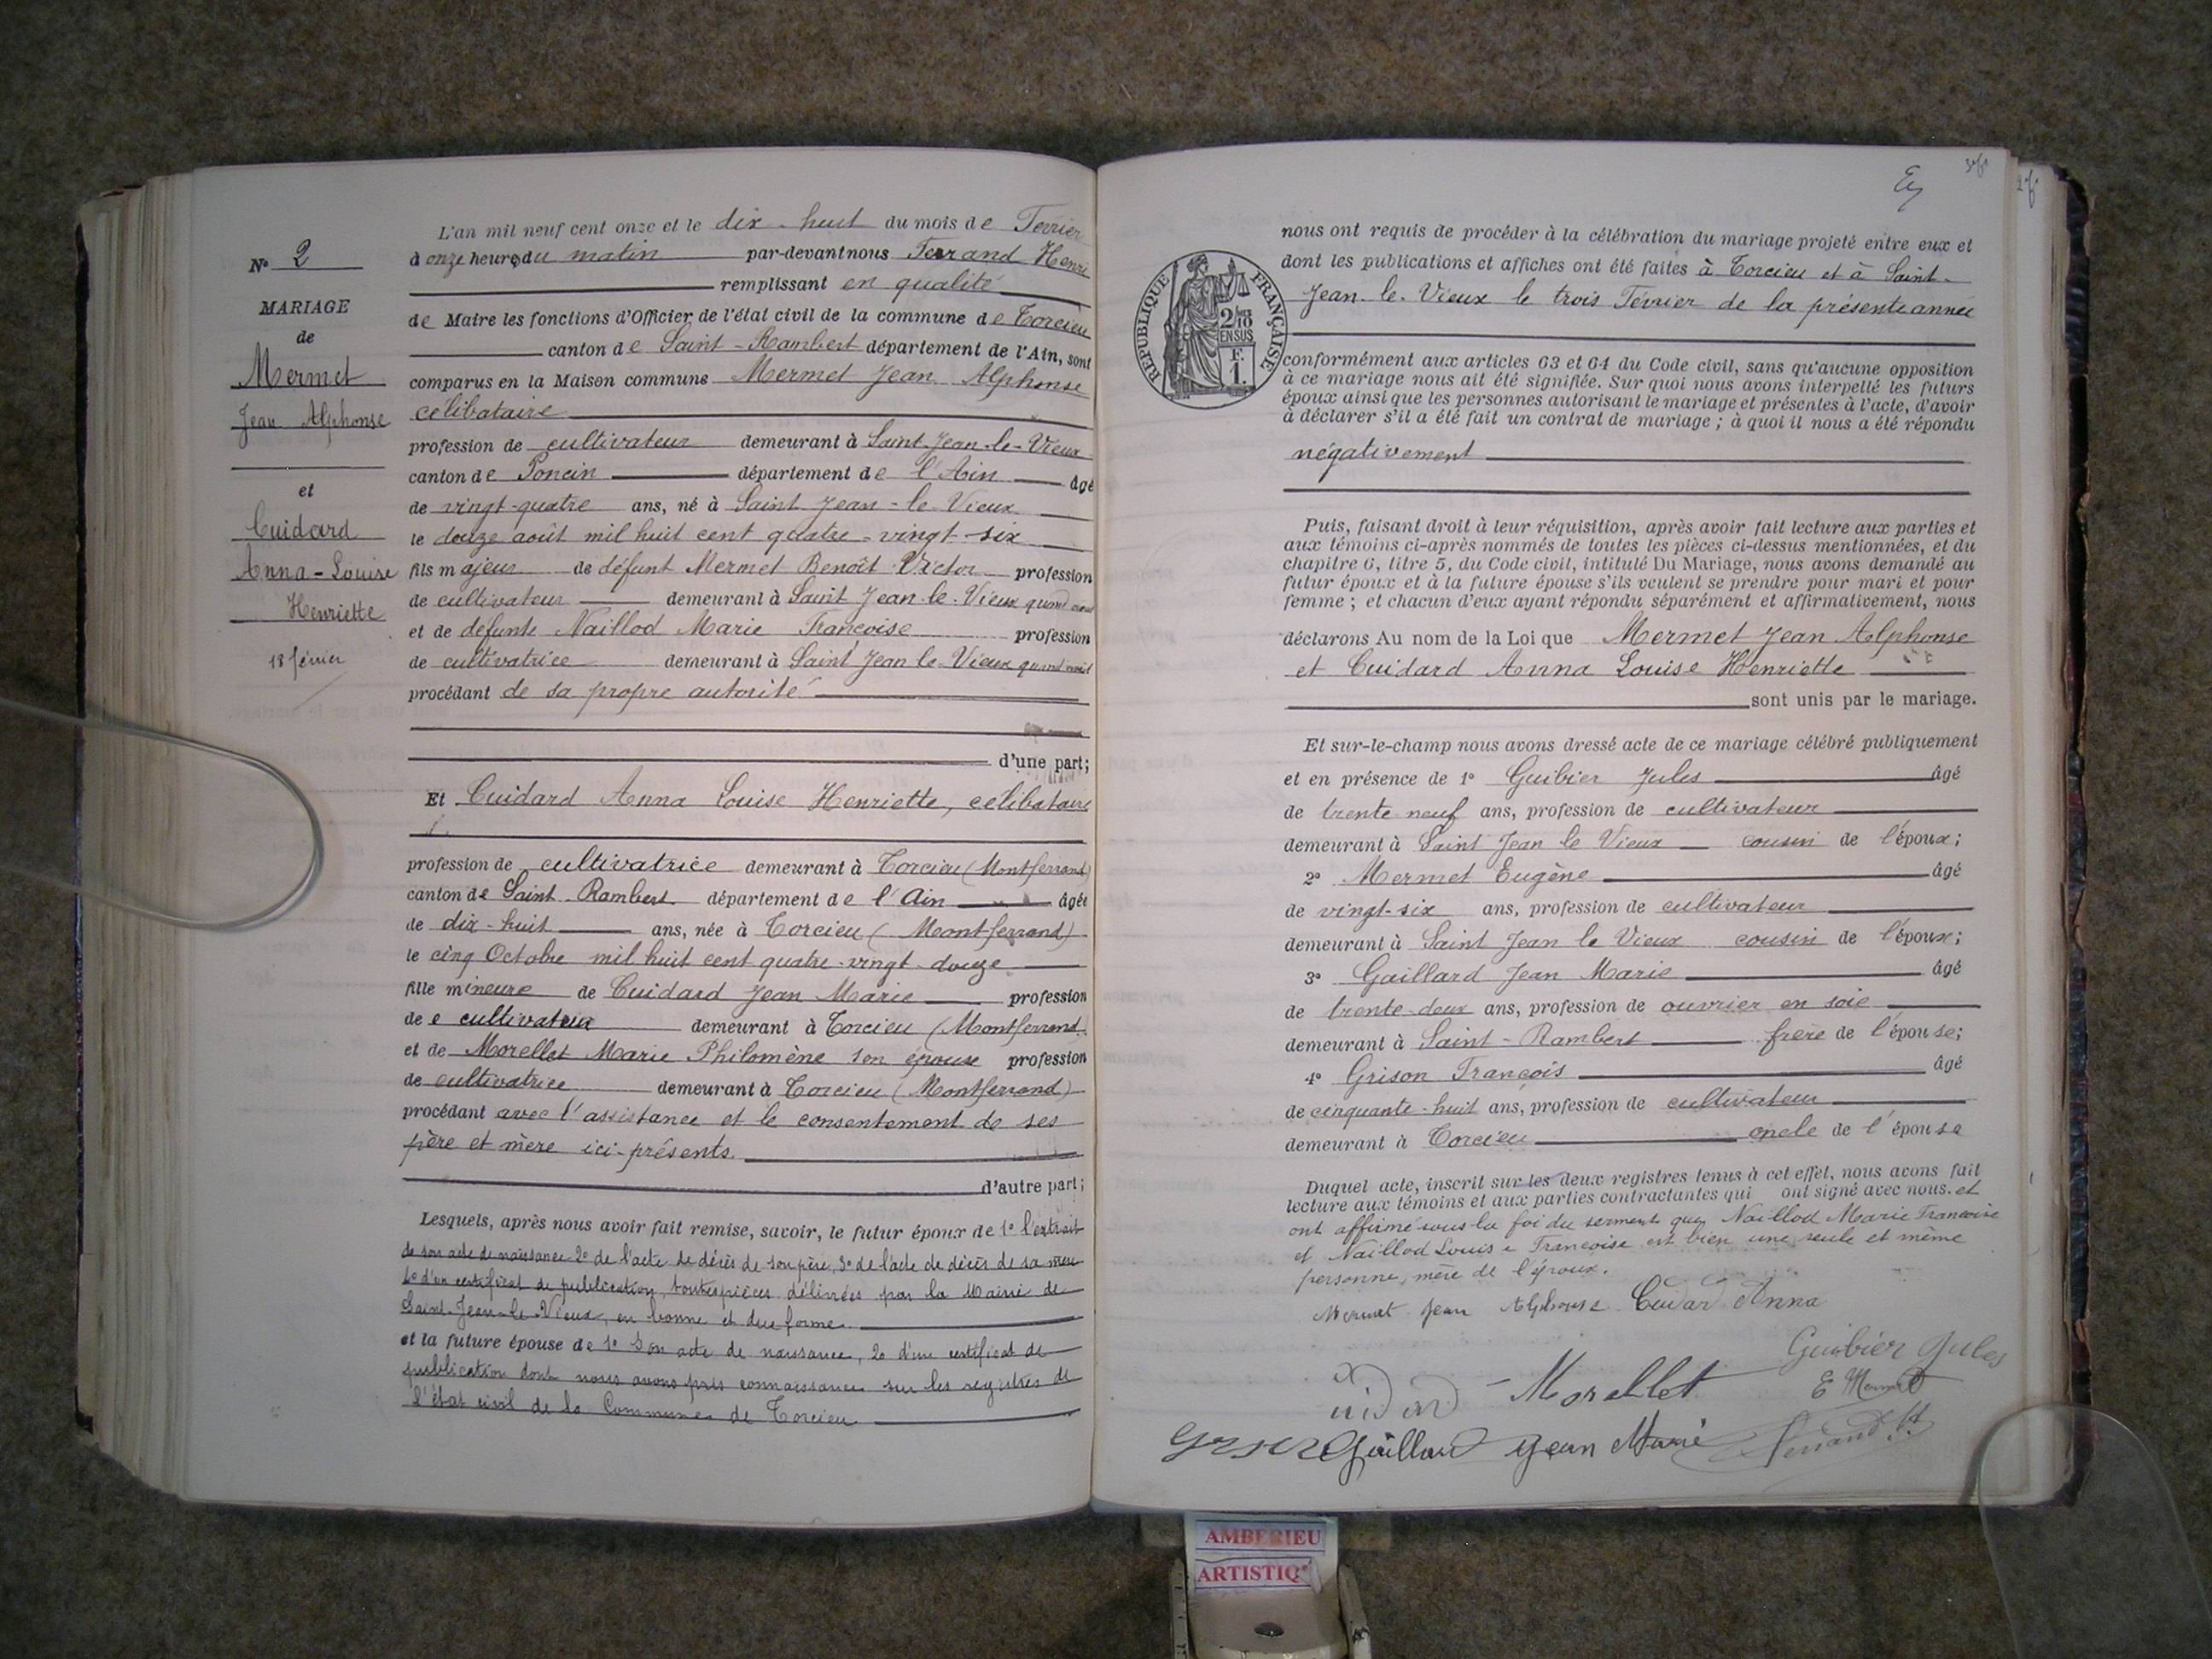 N° 2
MARIAGE
de
Mermet
Jean Alphonse
et
Cuidard
Anna-Louise
Henriette
18 février
L'an mil neuf cent onze et le dix-huit du mois de Février
à onze heures du matin par-devant nous Ferrand Henri
remplissant en qualité
de Maire les fonctions d'Officier de l'état civil de la commune de Torcieu
canton de Saint-Rambert département de l'Ain, sont
comparus en la Maison commune Mermet Jean Alphonse
célibataire
profession de cultivateur demeurant à Saint-Jean-le-Vieux
canton de Poncin département de l'Ain âgé
de vingt-quatre ans, né à Saint Jean-le-Vieux
le douze août mil huit cent quatre-vingt-six
fils majeur de défunt Mermet Benoît Victor profession
de cultivateur demeurant à Saint Jean-le-Vieux quand vivait
et de défunte Naillod Marie Françoise profession
de cultivatrice demeurant à Saint Jean le Vieux quand vivait
procédant de sa propre autorité
d'une part;
Et Cuidard Anna Louise Henriette, célibataire
profession de cultivatrice demeurant à Torcieu (Montferrand)
canton de Saint-Rambert département de l'Ain âgée
de dix-huit ans, née à Torcieu (Montferrand)
le cinq Octobre mil huit cent quatre-vingt-douze
fille mineure de Cuidard Jean Marie profession
de cultivateur demeurant à Torcieu (Montferrand
et de Morellet Marie Philomène son épouse profession
de cultivatrice demeurant à Torcieu (Montferrand)
procédant avec l'assistance et le consentement de ses
père et mère ici-présents.
d'autre part;
Lesquels, après nous avoir fait remise, savoir, le futur époux de 1° l'extrait
de son acte de naissance 2° de l'acte de décès de son père, 3° de l'acte de décès de sa mère
4° d'un certificat de publication, toutes pièces délivrées par la Mairie de
Saint-Jean-le-Vieux, en bonne et due forme.
et la future épouse de 1° Son acte de naissance, 2° d'un certificat de
publication dont nous avons pris connaissance sur les registres de
l'état civil de la Commune de Torcieu
RÉPUBLIQUE FRANÇAISE
2/10
EN SUS
F.
1.
nous ont requis de procéder à la célébration du mariage projeté entre eux et
dont les publications et affiches ont été faites à Torcieu et à Saint-
Jean-le-Vieux le trois Février de la présente année
conformément aux articles 63 et 64 du Code civil, sans qu'aucune opposition
à ce mariage nous ait été signifiée. Sur quoi nous avons interpellé les futurs
époux ainsi que les personnes autorisant le mariage et présentes à l'acte, d'avoir
à déclarer s'il a été fait un contrat de mariage ; à quoi il nous a été répondu
négativement
Puis, faisant droit à leur réquisition, après avoir fait lecture aux parties et
aux témoins ci-après nommés de toutes les pièces ci-dessus mentionnées, et du
chapitre 6, titre 5, du Code civil, intitulé Du Mariage, nous avons demandé au
futur époux et à la future épouse s'ils veulent se prendre pour mari et pour
femme ; et chacun d'eux ayant répondu séparément et affirmativement, nous
déclarons Au nom de la Loi que Mermet Jean Alphonse
et Cuidard Anna Louise Henriette
sont unis par le mariage.
Et sur-le-champ nous avons dressé acte de ce mariage célébré publiquement
et en présence de 1° Guibier Jules âgé
de trente neuf ans, profession de cultivateur
demeurant à Saint Jean le Vieux cousin de l'époux;
2° Mermet Eugène âgé
de vingt-six ans, profession de cultivateur
demeurant à Saint Jean le Vieux cousin de l'époux;
3° Gaillard Jean Marie âgé
de trente-deux ans, profession de ouvrier en soie
demeurant à Saint-Rambert frère de l'épouse;
4° Grison François âgé
de cinquante-huit ans, profession de cultivateur
demeurant à Torcieu oncle de l'épouse
Duquel acte, inscrit sur les deux registres tenus à cet effet, nous avons fait
lecture aux témoins et aux parties contractantes qui ont signé avec nous. et
ont affirmé sous la foi du serment que Naillod Marie Françoise
et Naillod Louise Françoise est bien une seule et même
personne, mère de l'époux.
Mermet Jean Alphonse Cuidard Anna
Guibier Jules
Morellet E Mermet
Gaillard Jean Marie Ferrand H
AMBERIEU
ARTISTIQ